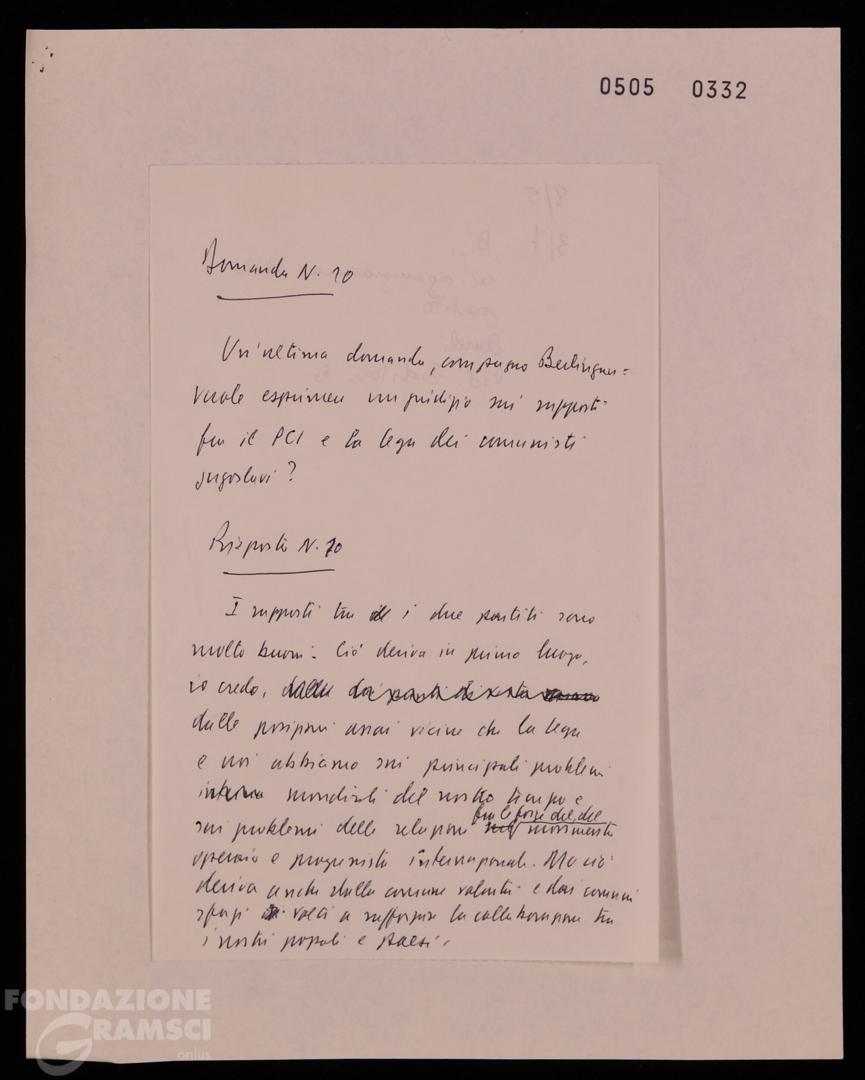 0505 0332
Domanda N. 10
Un'ultima domanda, compagno Berlinguer:
vuole esprimere un giudizio sui rapporti
fra il PCI e la lega dei comunisti
jugoslavi?
Risposta N. 10
I rapporti tra i due partiti sono
molto buoni. Ciò deriva in primo luogo,
io credo,
dalle posizioni assai vicine che la lega
e noi abbiamo sui principali problemi
mondiali del nostro tempo e
fra le forze del
sui problemi delle relazioni movimento
operaio e progressista internazionale. Ma ciò
deriva anche dalla comune volontà e dai comuni
sforzi volti a rafforzare la collaborazione tra
i nostri popoli e paesi.
FONDAZIONE
GRAMSCI
onlus